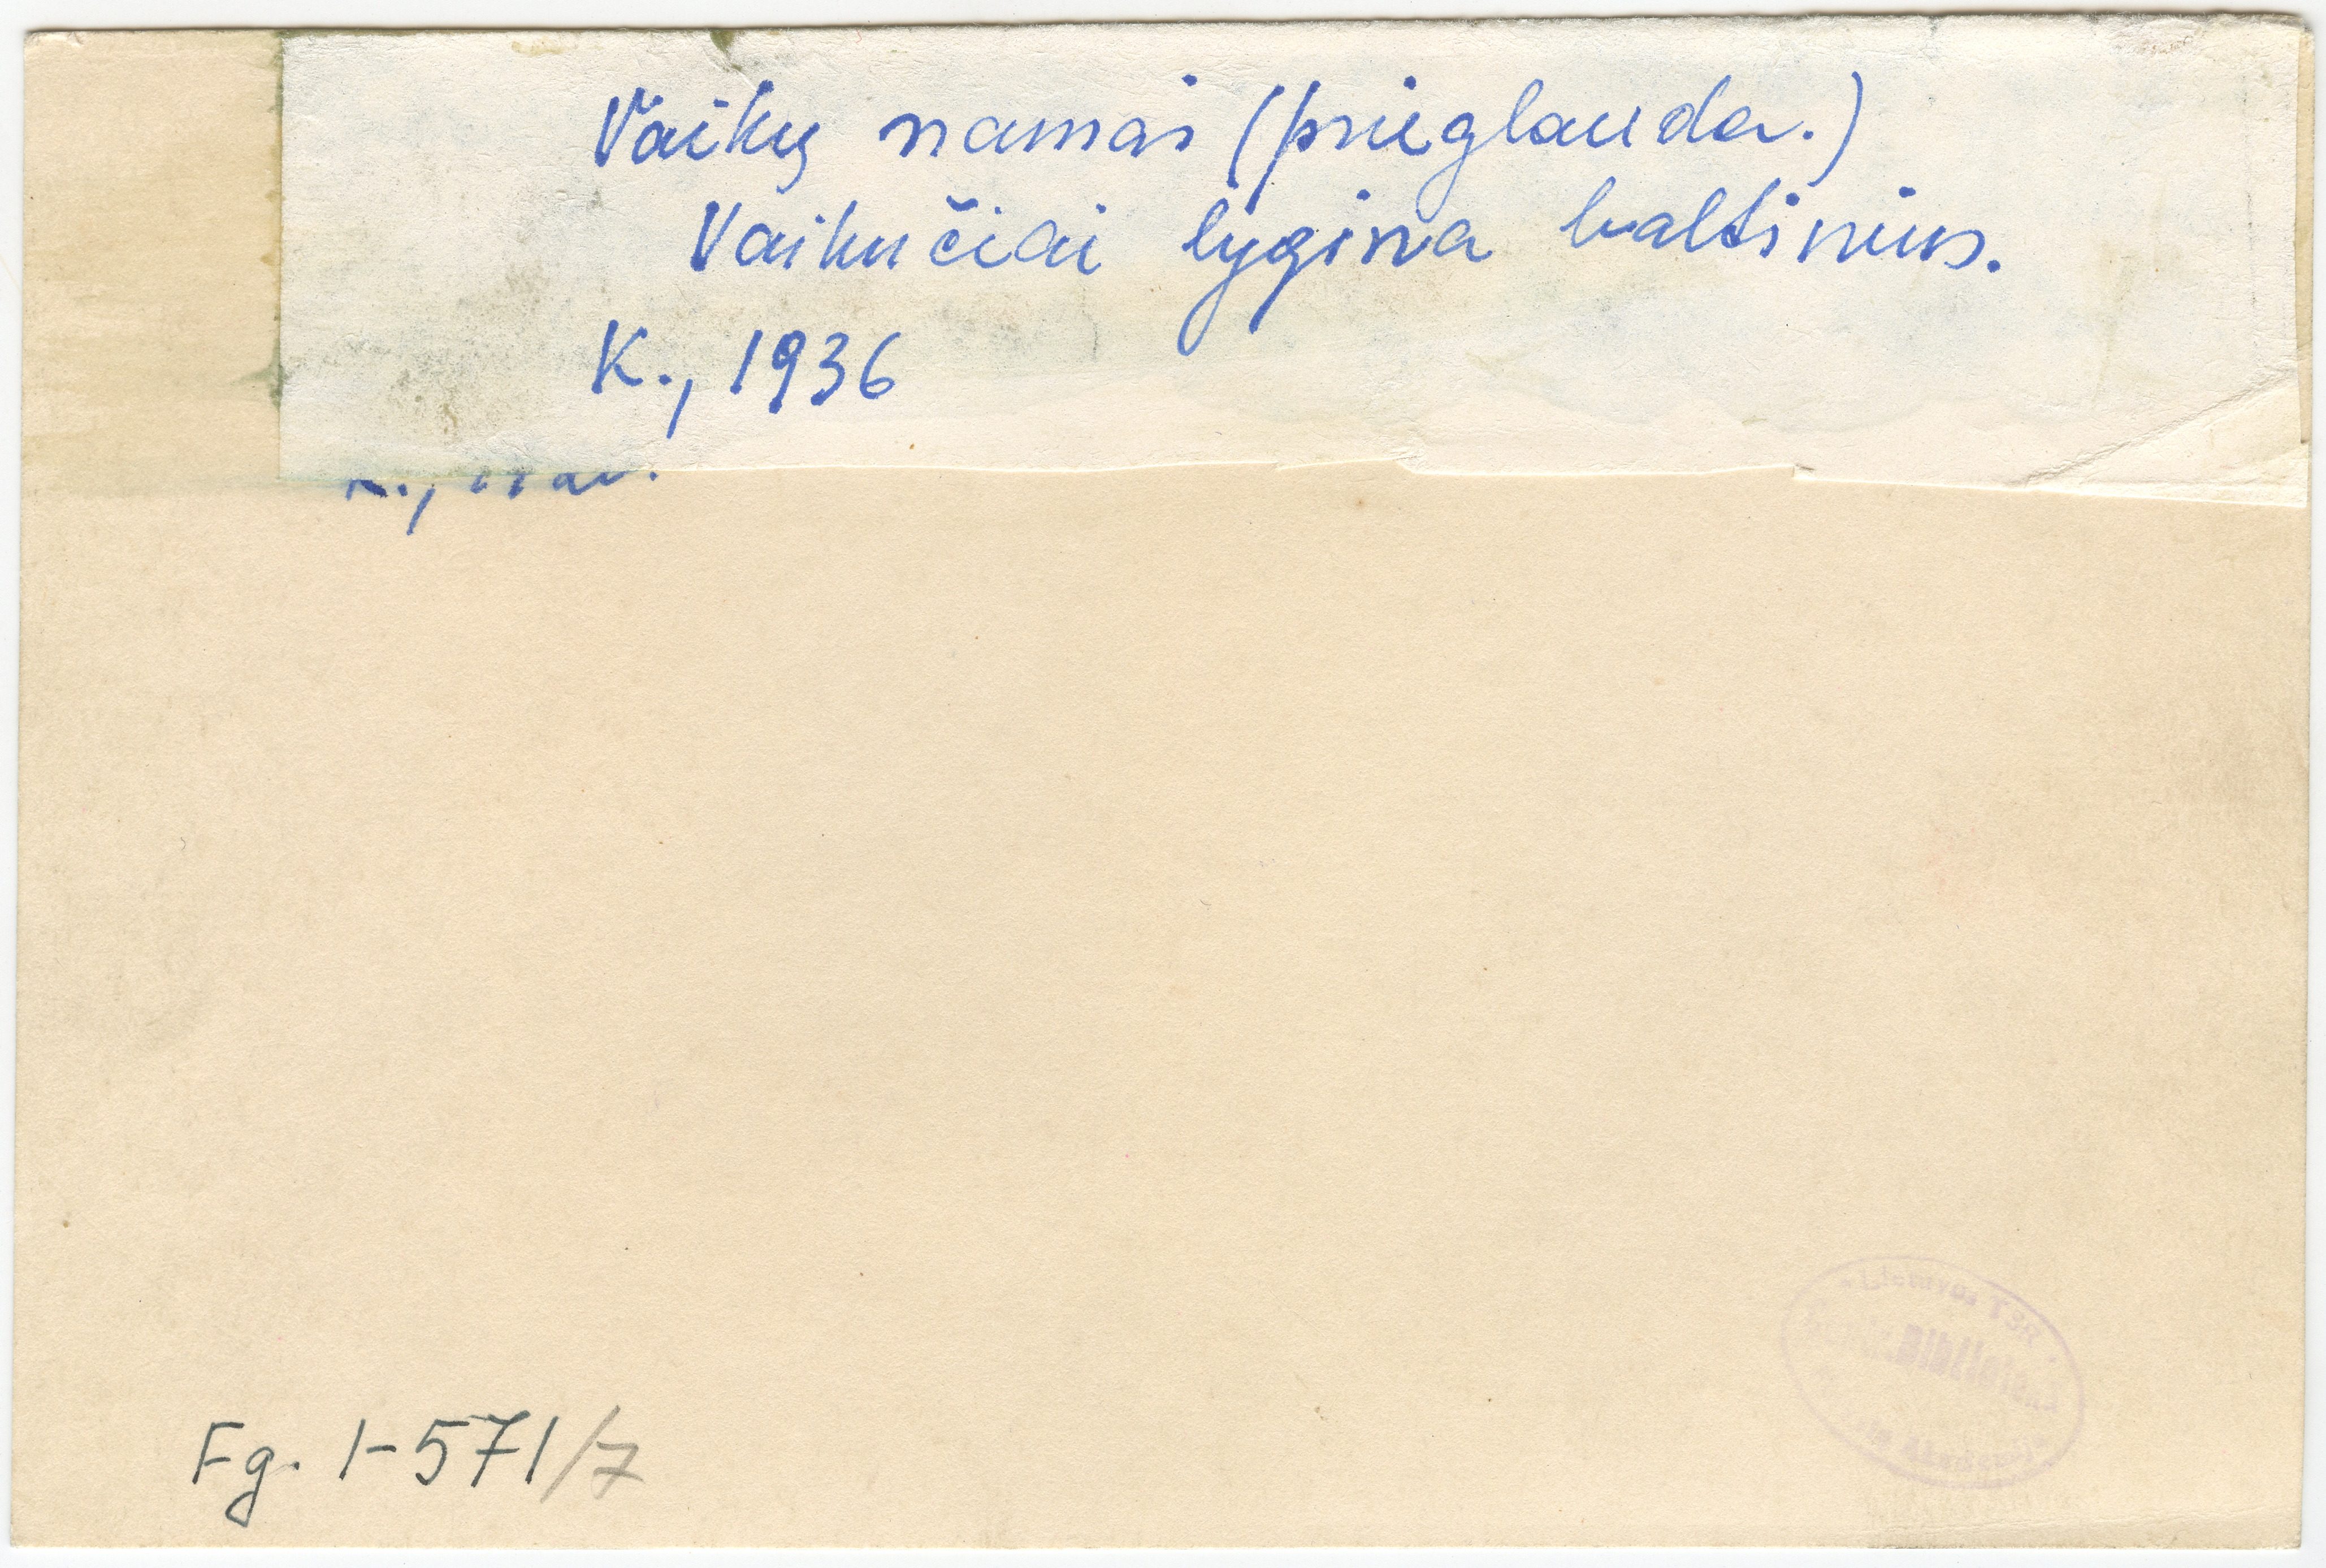 Vaikų namai (prieglauda.)
Vaikučiai lygina baltinius.
K., 1936
Lietuvos TSR
Biblioteka
Fg. 1-571/7